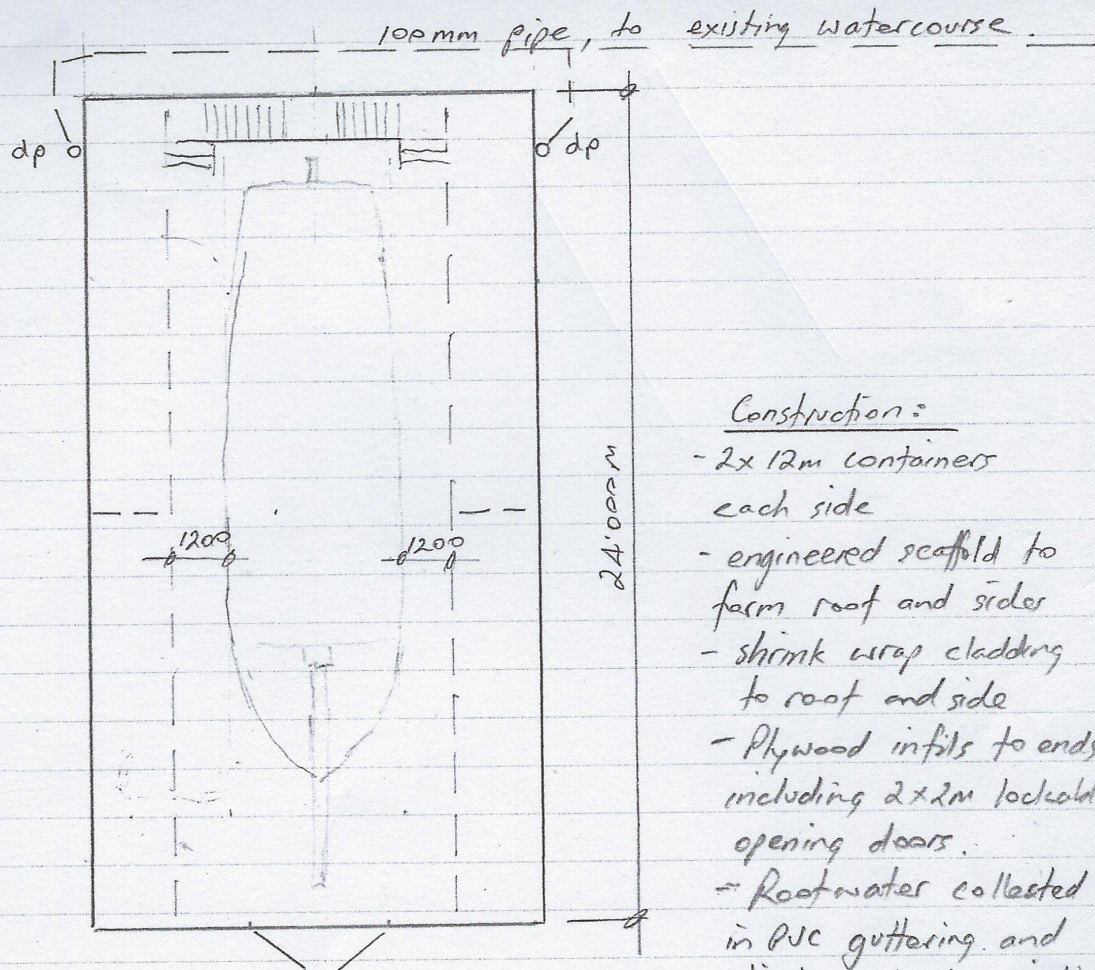 100mm pipe, to existing watercourse.
dp
dp
1200
1200
24'000m
Construction:
- 2x 12m containers
each side
- engineered scaffold to
form roof and sides
- shrink wrap cladding
to roof and side
- Plywood infils to ends
including 2x2m lockabl
opening doors.
- Roofwater collected
in PVC guttering and